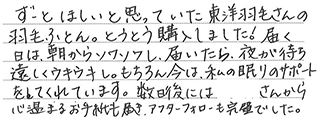 ずーとほしいと思っていた東洋羽毛さんの
羽毛ふとん。とうとう購入しました!届く
日は、朝からソワソワし、届いたら、夜が待ち
遠しくウキウキし。もちろん今は、私の眠りのサポート
をしてくれています。数日後には　　　さんから
心温まるお手紙も届き、アフターフォローも完璧でした。